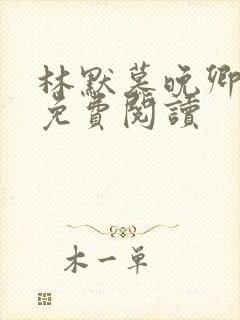 林默慕晚卿
免費閱讀
木一单